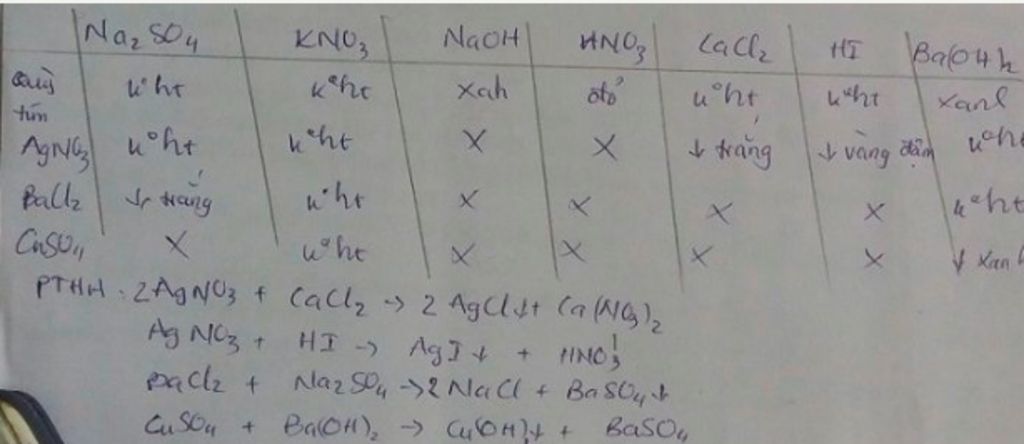 Na₂SO₄ KNO₃ NaOH HNO₃ CaCl₂ HI Ba(OH)₂
Quỳ k°ht k°ht xah đỏ k°ht k°ht xanh
tím
AgNO₃ k°ht k°ht X X ↓ trắng ↓ vàng đậm k°ht
BaCl₂ ↓ trắng k°ht X X X X k°ht
CuSO₄ X k°ht X X X X ↓ xanh
PTHH: 2AgNO₃ + CaCl₂ → 2AgCl↓ + Ca(NO₃)₂
AgNO₃ + HI → AgI↓ + HNO₃
BaCl₂ + Na₂SO₄ → 2NaCl + BaSO₄↓
CuSO₄ + Ba(OH)₂ → Cu(OH)↓ + BaSO₄